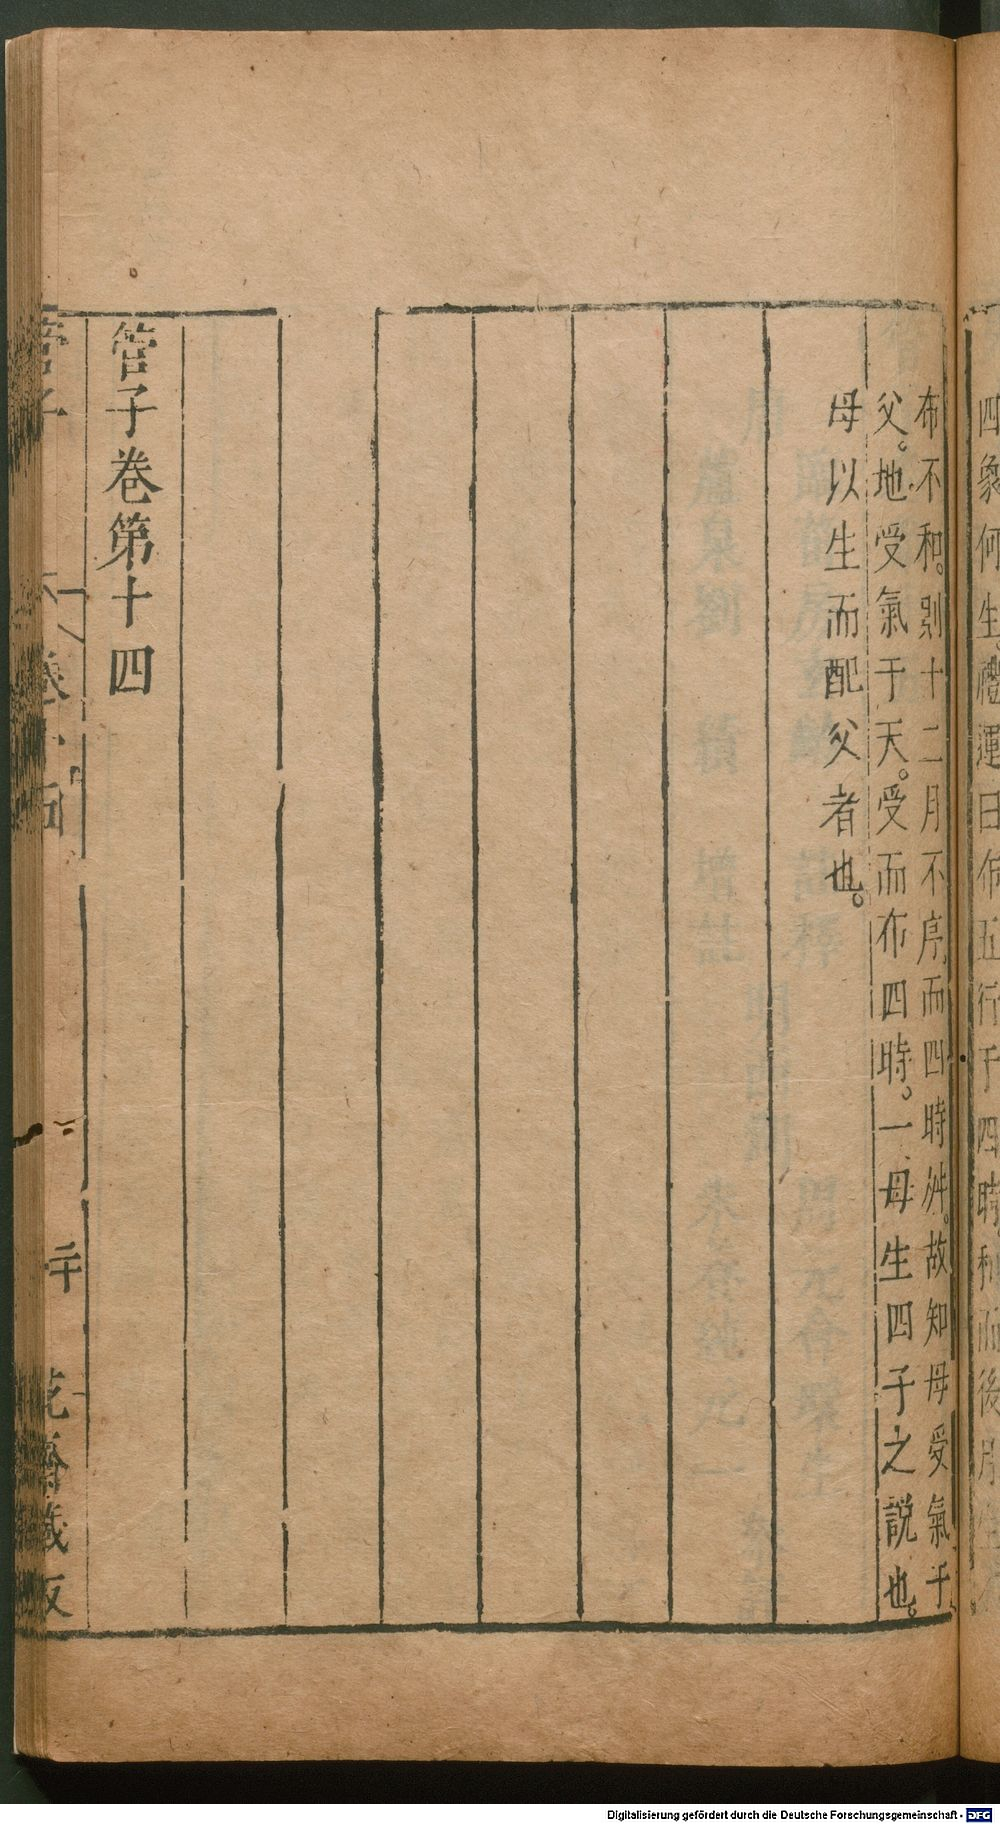 四象何生禮運曰布五行于四時和而後月生
布不和。則十二月不序,而四時舛。故知母受氣于
父。地受氣于天。受而布四時。一母生四子之說也。
母以生而配父者也。
管子卷第十四
管子
卷十四
二十
花齋藏板
Digitalisierung gefördert durch die Deutsche Forschungsgemeinschaft - DFG